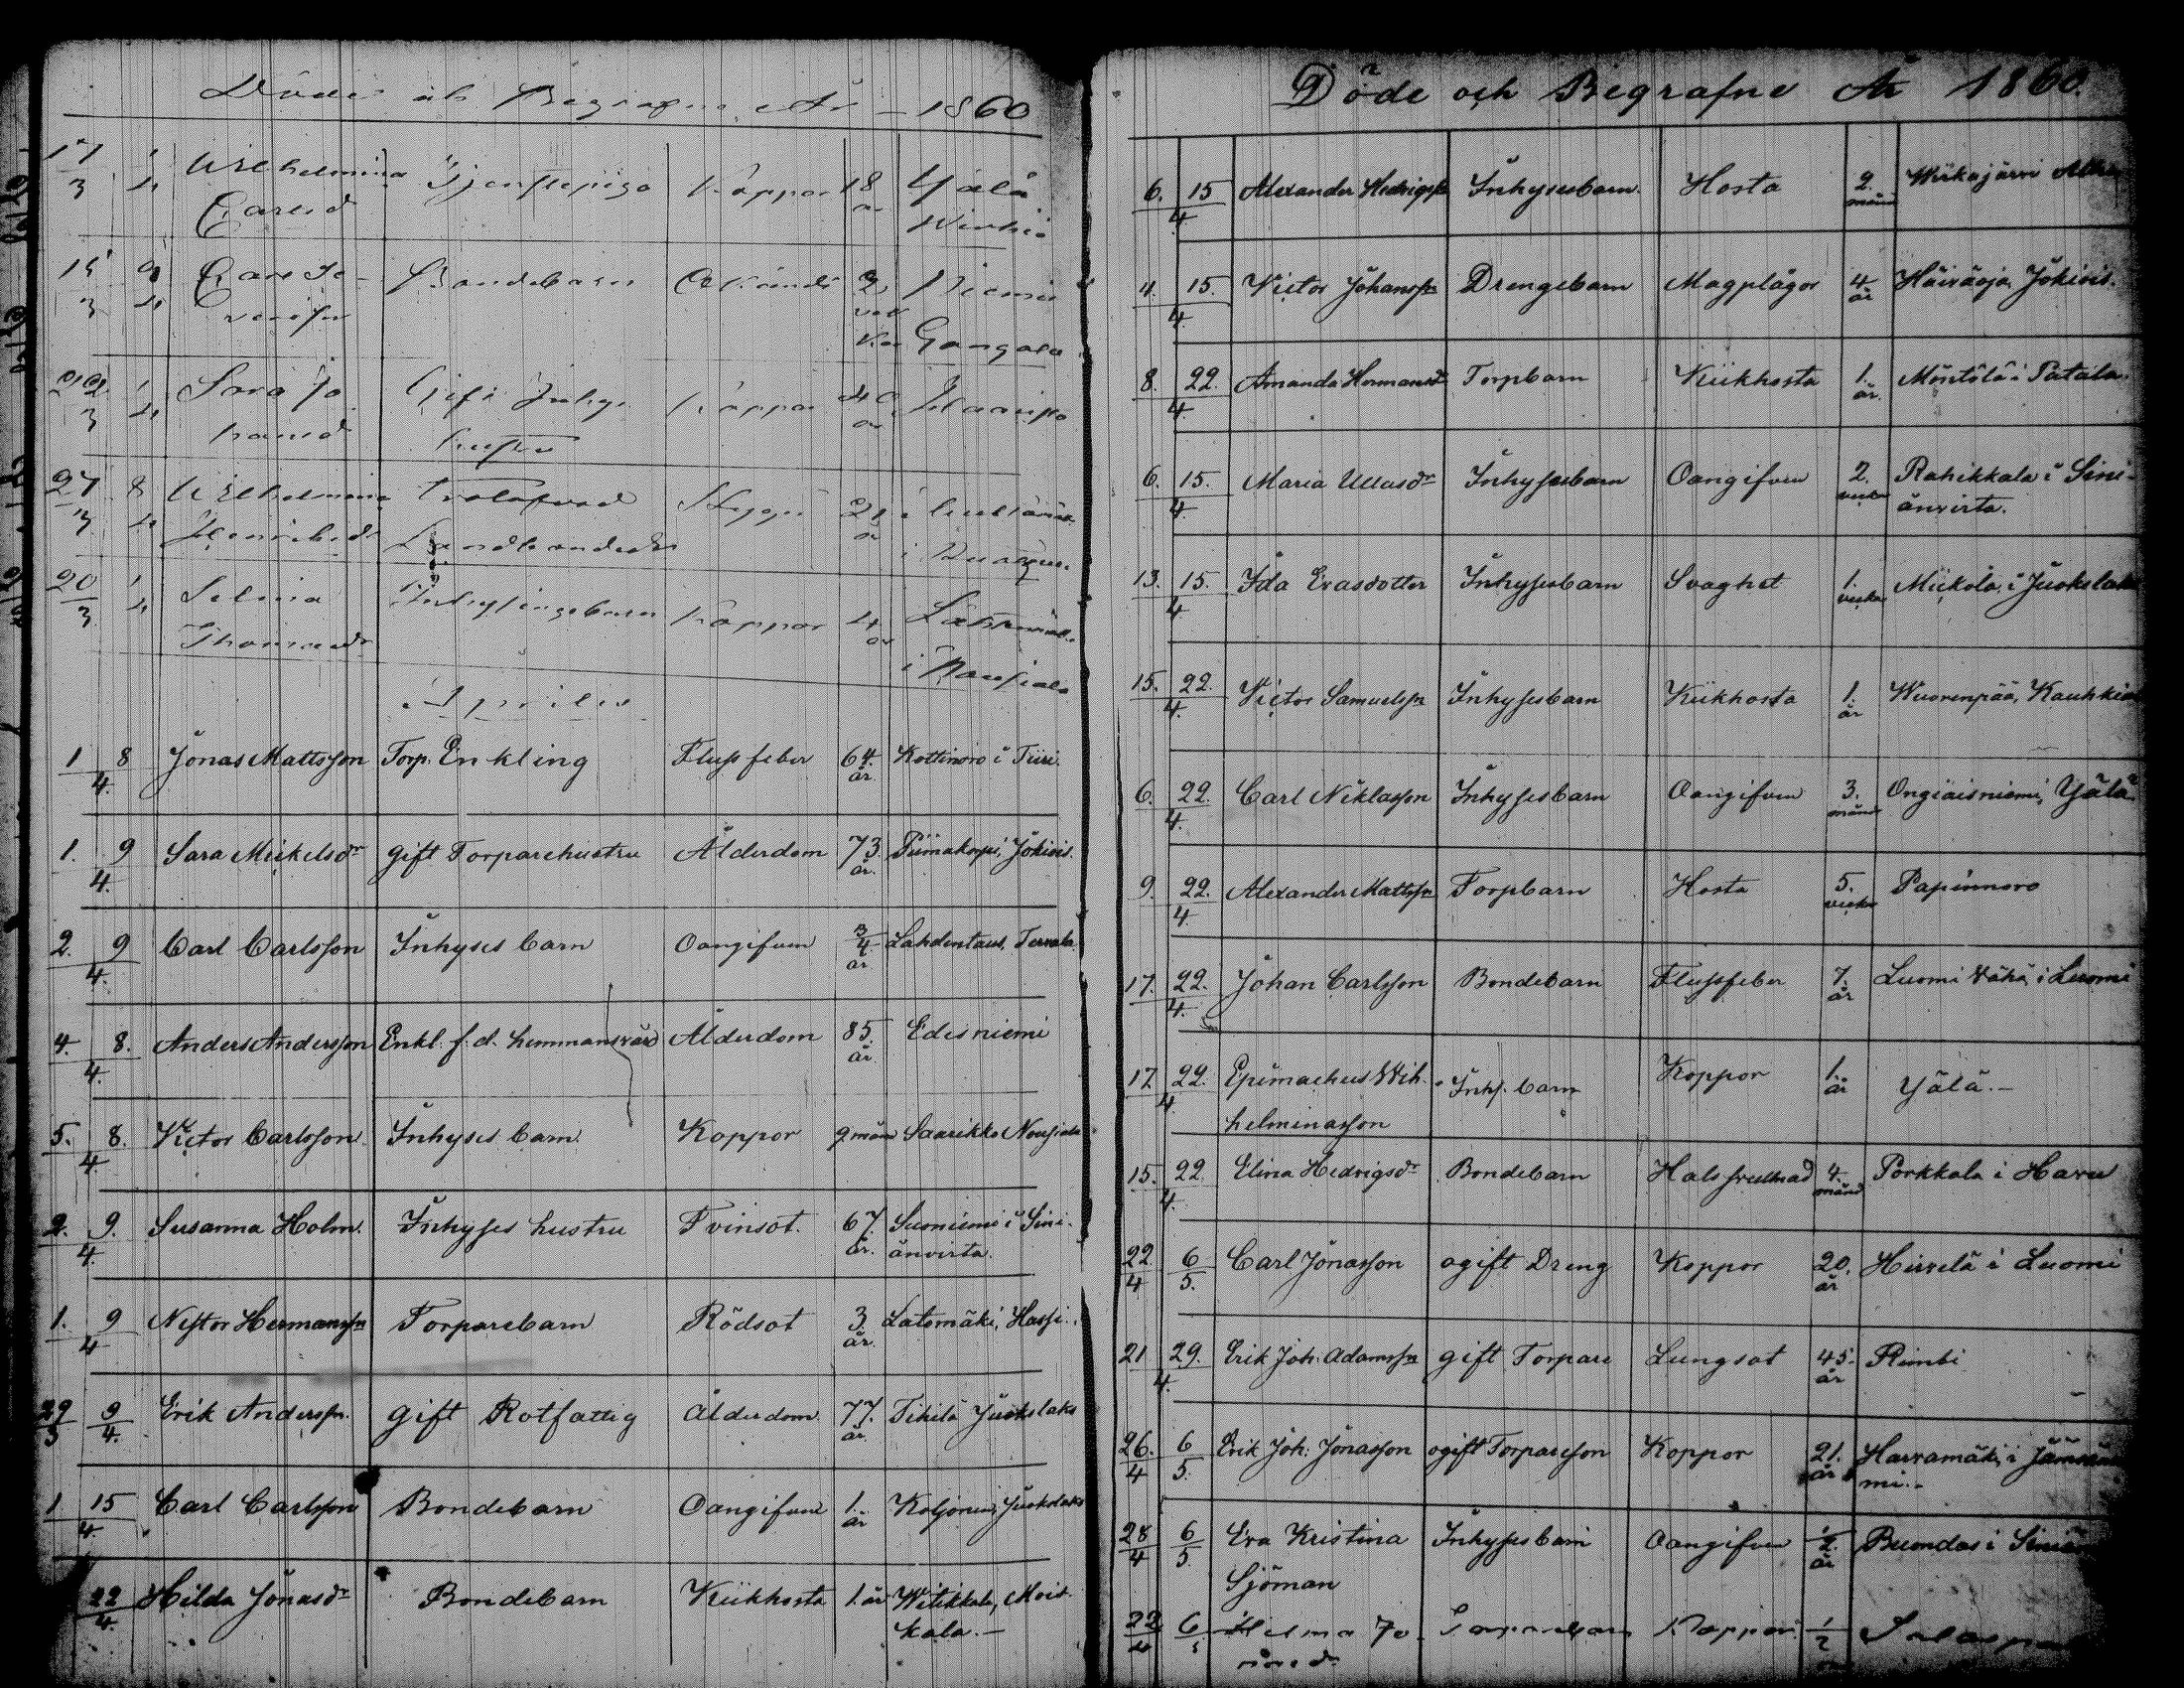 Döde och Begrafne År 1860
17/3 1/4 Wilhelmina Tjenstepiga Koppor 18 Yälä
Carlsd år
15/3 9/4 Bondebarn Okänd 2 Niemi
Gangala
22/3 1/4 Sara Jo Gift Inhys Koppor 40
hansd hustru år
27/3 8/4 Wilhelmina 21
Henriksdr år
20/3 1/4 Selma Inhysingebarn Koppor 4
Thomasdr år
i Nousiala
Aprilis
1 8/4. Jonas Mattsson Torp. Enkling Flussfeber 64. år. Kottinoro i Tiiri.
1. 9/4. Sara Mickelsdr gift Torparehustru Ålderdom 73. år. Piimakorpi, Jokiois.
2. 9/4. Carl Carlsson Inhyses barn Oangifven 3/4 år Lahdentaus,
4. 8./4. Anders Andersson Enkl. f. d. hemmansvärd Ålderdom 85. år. Edesniemi
5. 8./4. Victor Carlsson Inhyses barn Koppor 9 mån Saarikko Nousiala
2. 9./4. Susanna Holm. Inhyses hustru Tvinsot. 67. år. Suoniemi i Sini-
änvirta.
1. 9/4 Nestor Hermanssn Torparebarn Rödsot 3. år. Latomäki, Hassi.
29/3 9/4. Erik Anderssn. gift Rotfattig Ålderdom. 77. år. Tikilä Juokslaks
1 15/4. Carl Carlsson Bondebarn Oangifven 1. år Koljonen, Juokslaks
22/4. Hilda Jonasdr Bondebarn Kikhosta 1. år Witikkala, Mois-
kala.–
Döde och Begrafne År 1860.
6. 15/4. Alexander Hedvigssn Inhysesbarn. Hosta 2. månd Wirkajärvi
4. 15./4. Victor Johanssn Drengebarn Magplågor 4 år Häiväoja, Jokiois.
8. 22./4. Amanda Hermansdr Torpbarn Kikhosta 1. år. Möntölä i Patala.
6. 15./4. Maria Ullasdr Inhysesbarn Oangifven 2. veckor Rahikkala i Sini-
änvirta.
13. 15./4 Ida Evasdotter Inhysesbarn Svaghet 1. vecka Mickola, i Juokslaks
15. 22./4. Victor Samuelssn Inhysesbarn Kikhosta 1. år Wuorenpää, Kauhkia
6. 22./4. Carl Niklasson Inhysesbarn Oangifven 3. månd Ongiäisniemi, Yälä.
9. 22./4. Alexander Mattssn Torpbarn Hosta 5. veckor Papinnoro
17. 22./4. Johan Carlsson Bondebarn Flussfeber 7. år Luomi Vähä i Luomi
17 22./4. Epimachus Wil- Inhs. barn Koppor 1. år Yälä.–
helminasson
15. 22/4. Elina Hedvigsdr Bondebarn Halssvullnad 4. månd Porkkala i Havu
22/4 6/5. Carl Jonasson ogift Dreng Koppor 20. år Hirvelä i Luomi
21 29./4. Erik Joh: Adamssn gift Torpare Lungsot 45. år Rimbi
26./4 6/5. Erik Joh: Jonasson ogift Torpareson Koppor 21. år Harramäki, i Jämsänie
mi.–
28/4 6/5. Eva Kristina Inhysesbarn Oangifven 1/2 år i Siniä
Sjöman
22/4 6/5 Helma Jo- Torparebarn Koppor 1/2